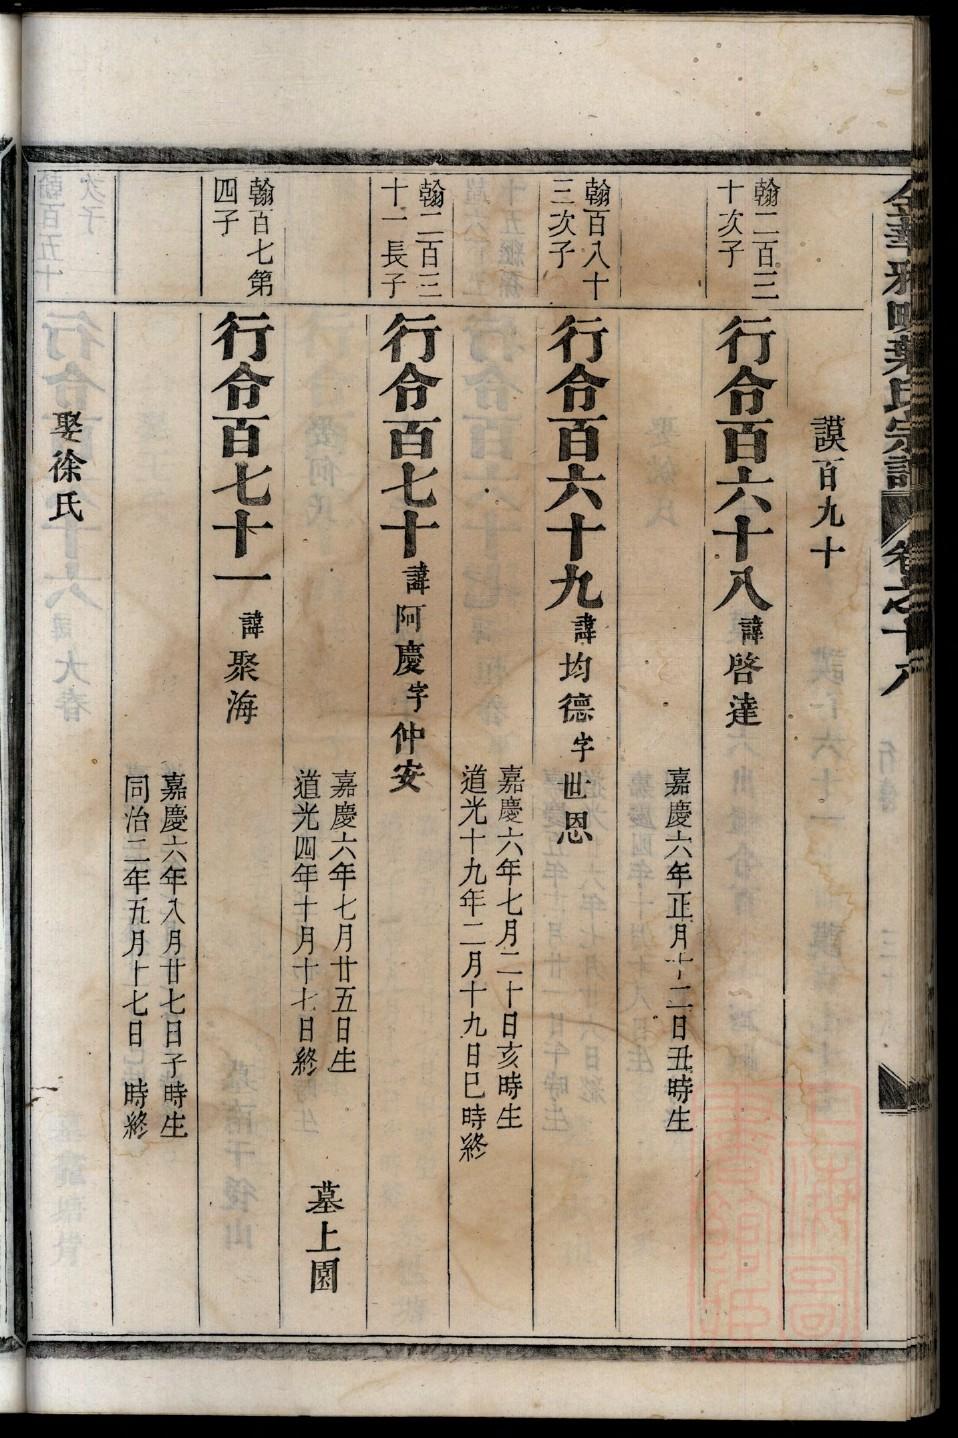 謨百九十
翰二百三
十次子
行令百六十八 諱啓達
嘉慶六年正月十二日丑時生
翰百八十
三次子
行令百六十九 諱均德字世恩
嘉慶六年七月二十日亥時生
道光十九年二月十九日巳時終
翰二百三
十一長子
行令百七十 諱阿慶字仲安
嘉慶六年七月廿五日生
道光四年十月十七日終
墓上園
翰百七第
四子
行令百七十一 諱聚海
嘉慶六年八月廿七日子時生
同治二年五月十七日 時終
娶徐氏